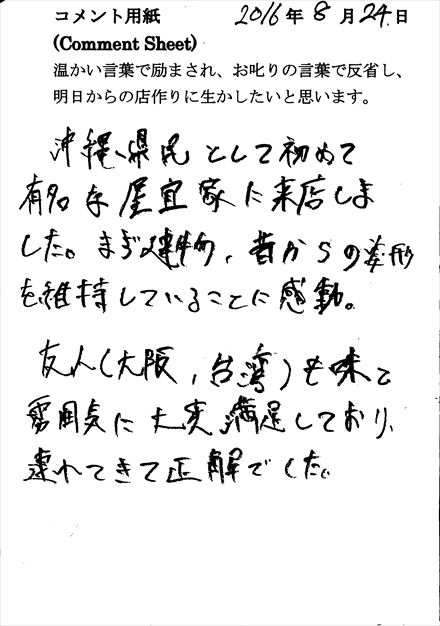 コメント用紙 2016年8月24日
(Comment Sheet)
温かい言葉で励まされ、お叱りの言葉で反省し、
明日からの店作りに生かしたいと思います。
沖縄県民として初めて
有名な屋宜家に来店しま
した。まず建物、昔からの姿形
を維持していることに感動。
友人(大阪,台湾)も味と
雰囲気に大変満足しており、
連れてきて正解でした。